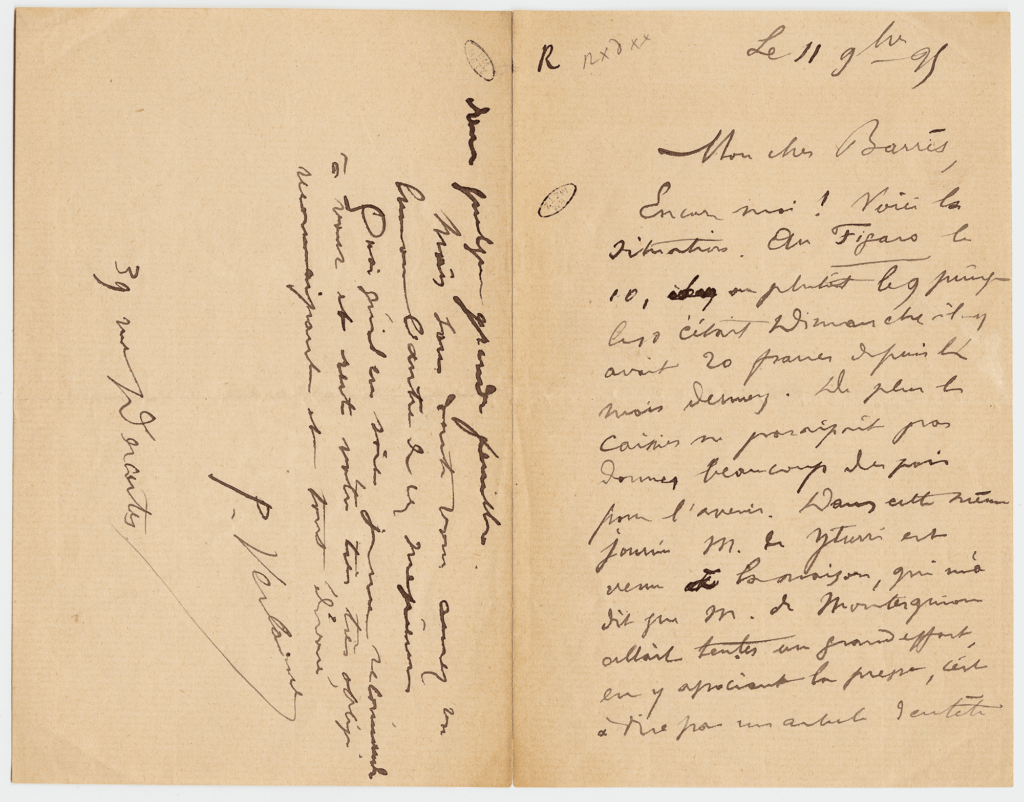 R
Le 11 9bre 95
Mon cher Barrès,
Encore moi ! Voici la
situation. Au Figaro le
10, ou plutôt le 9 puisque
le 10 c'était Dimanche il y
avait 20 francs depuis le
mois dernier. De plus le
caissier ne paraissait pas
donner beaucoup d'espoir
pour l'avenir. Dans cette même
journée M. de Yturri est
venu à la maison, qui m'a
dit que M. de Montesquiou
allait tenter un grand effort,
en y associant la presse, c'est
à dire par un article d'entête
dans quelque grande feuille.
Mais vous, dont vous avez en
l'autre de ces messieurs
Quoi qu'il en soit je me recommande
à vous et suis votre très, très obligé
reconnaissant et tout dévoué,
P. Verlaine
39 rue Descartes